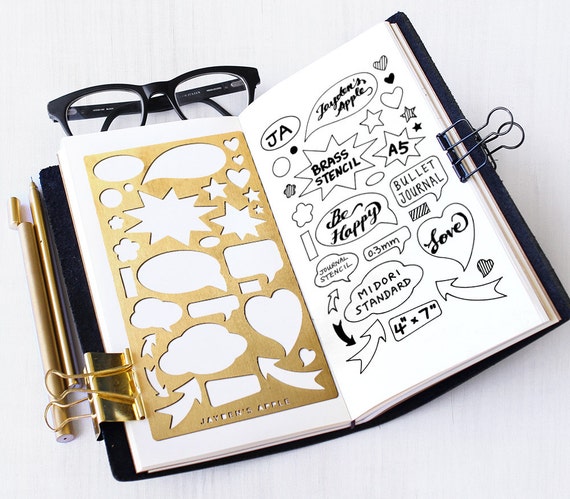 Jayden's
Apple
JA
BRASS
STENCIL
A5
BULLET
JOURNAL
Be
Happy
Love
0.3mm
JOURNAL
STENCIL
MIDORI
STANDARD
4" x 7"
JAYDEN'S APPLE